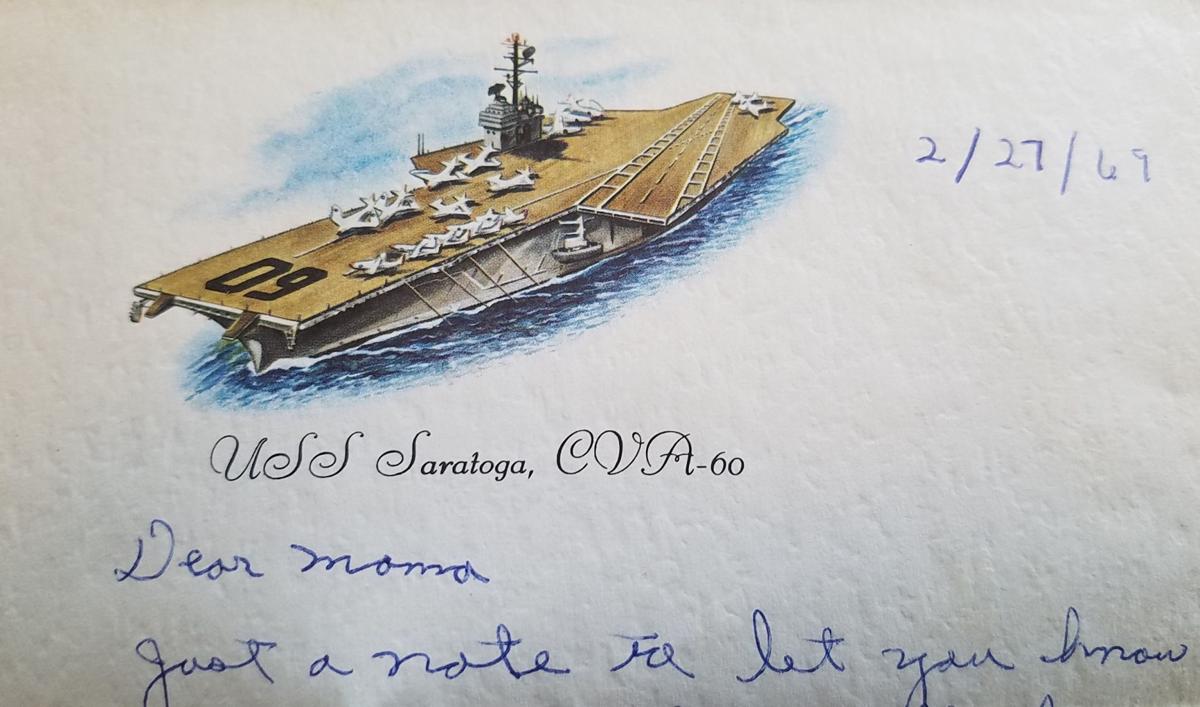 2/27/69
60
USS Saratoga, CVA-60
Dear Moma
Just a note to let you know